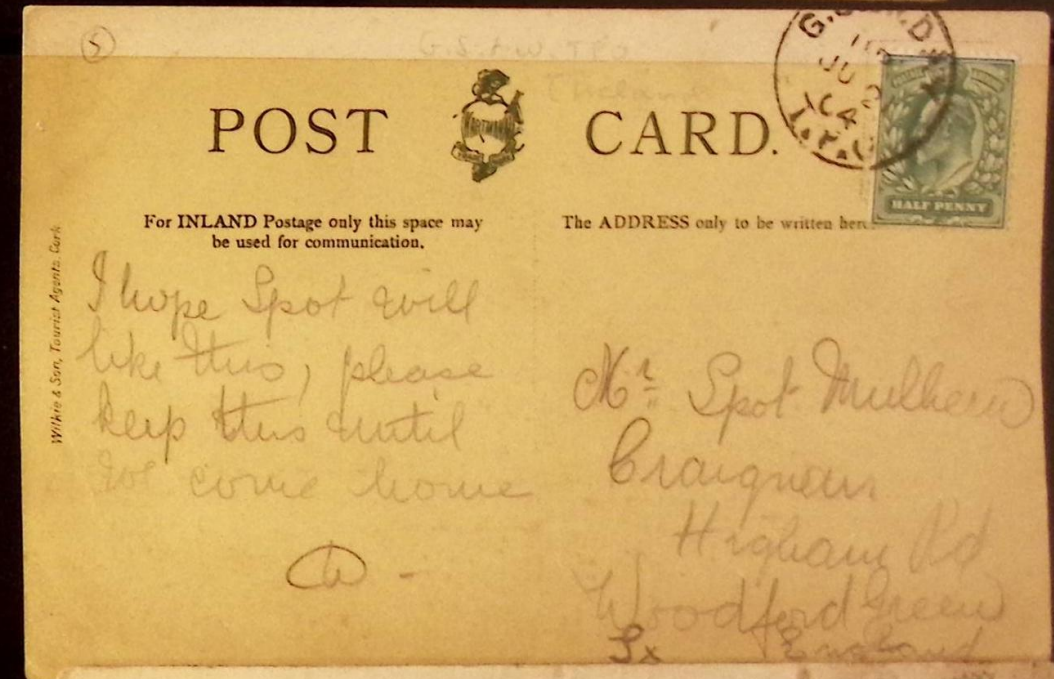 5
G.S.&W. TPO
Ireland
POST CARD.
JU
04
HALF PENNY
For INLAND Postage only this space may
be used for communication.
The ADDRESS only to be written here.
Wilkie & Son, Tourist Agents. Cork
I hope Spot will
like this, please
keep this until
we come home
Mr Spot
Higham Rd
Woodford Green
England